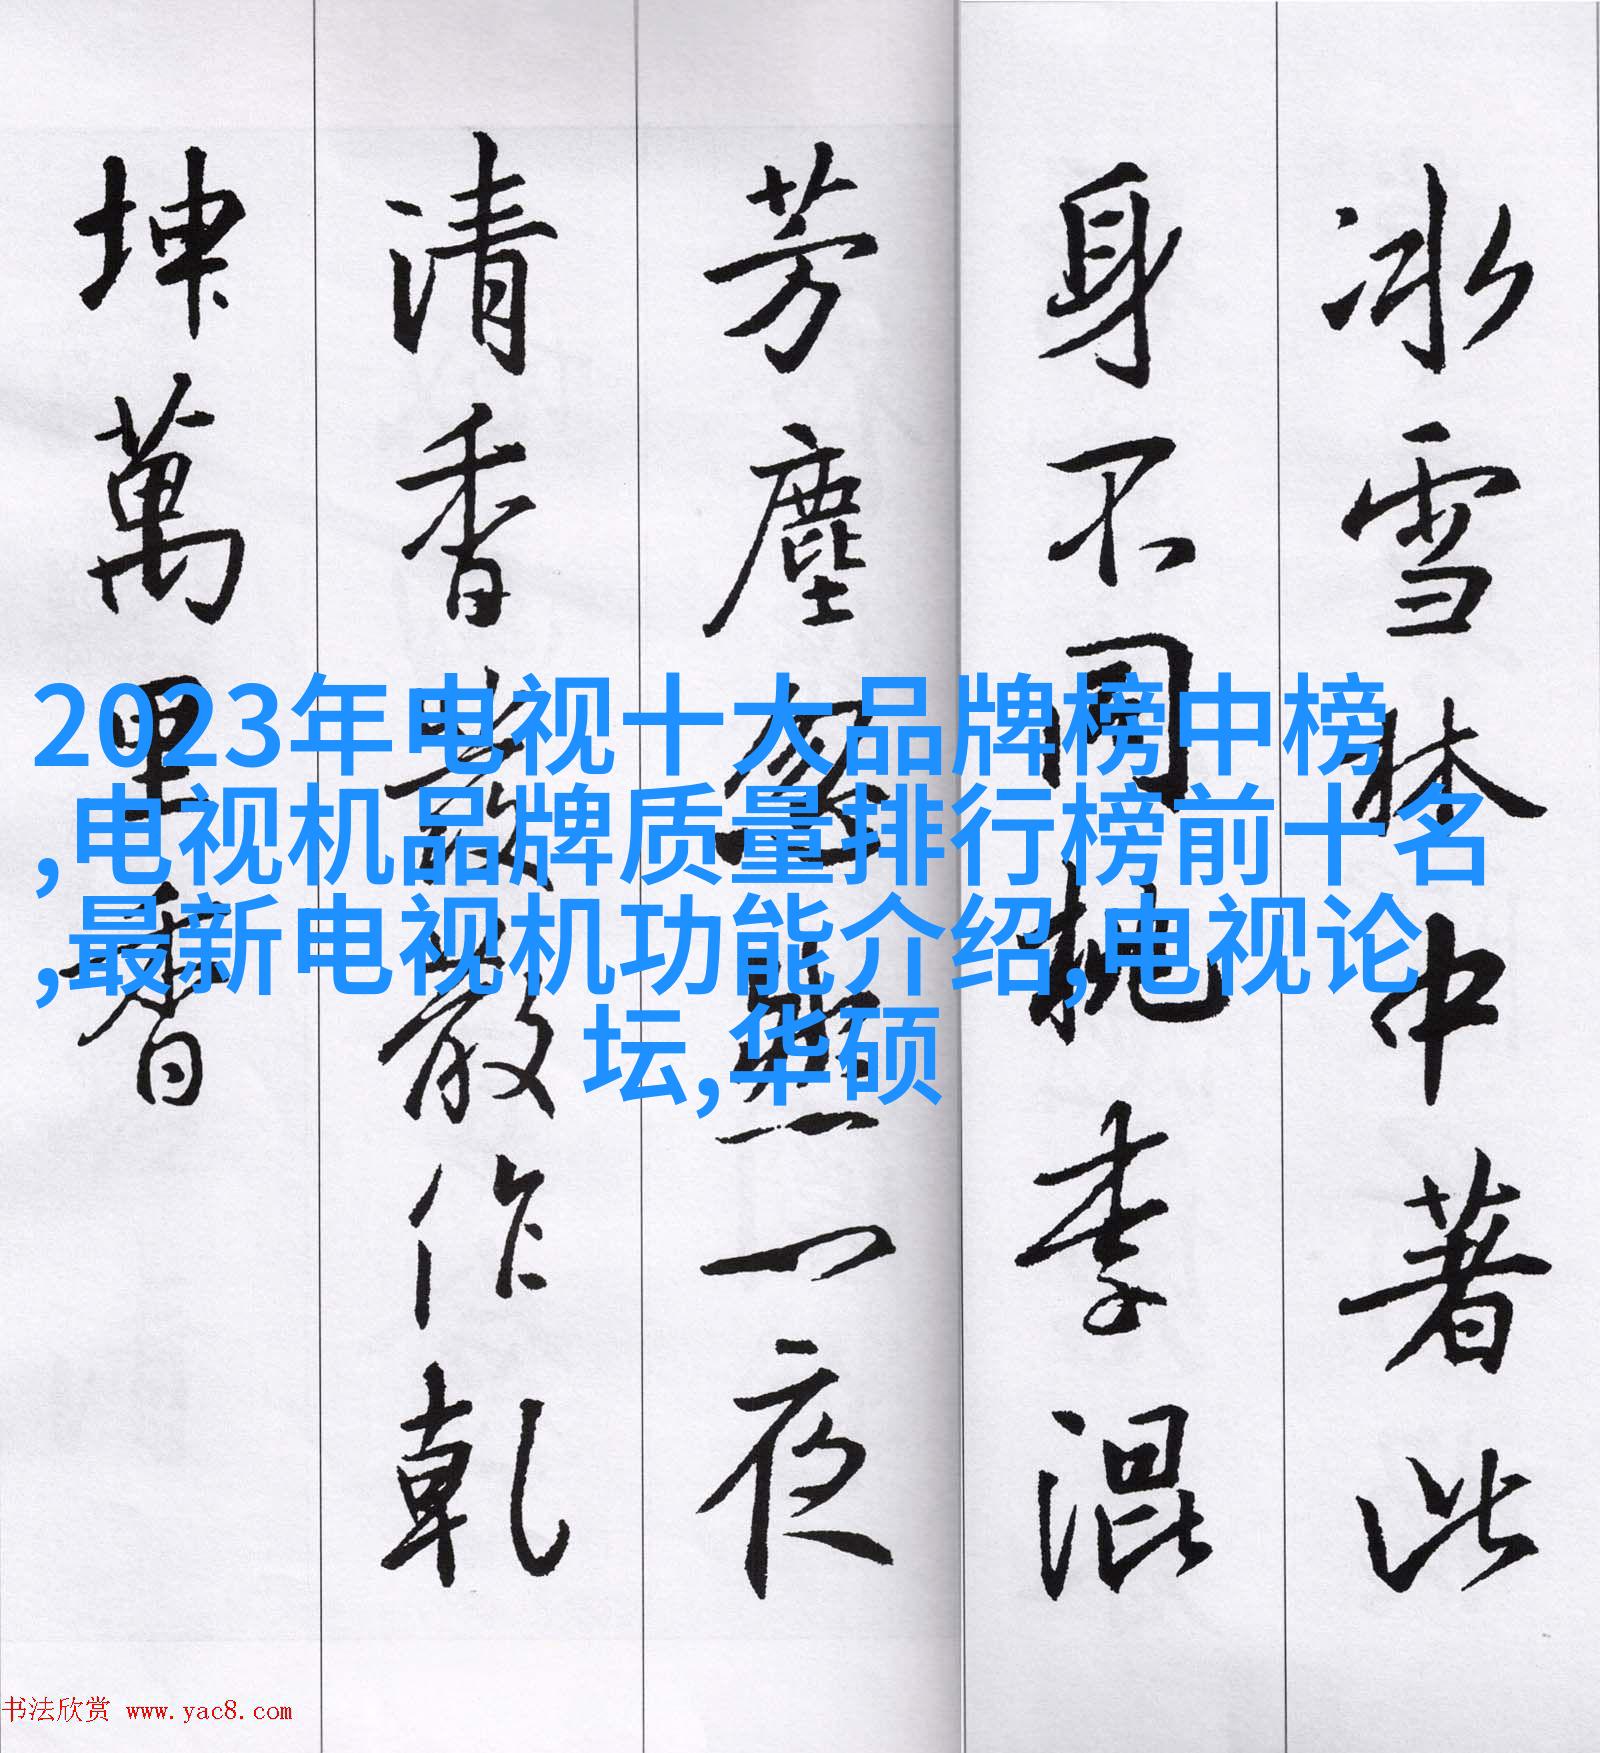 冰雪林中著此
身不同桃李混
芳塵忽然一夜
清香發散作乾
坤萬里香
2023年电视十大品牌榜中榜
,电视机品牌质量排行榜前十名
,最新电视机功能介绍,电视论
坛,华硕
书法欣赏 www.yac8.com